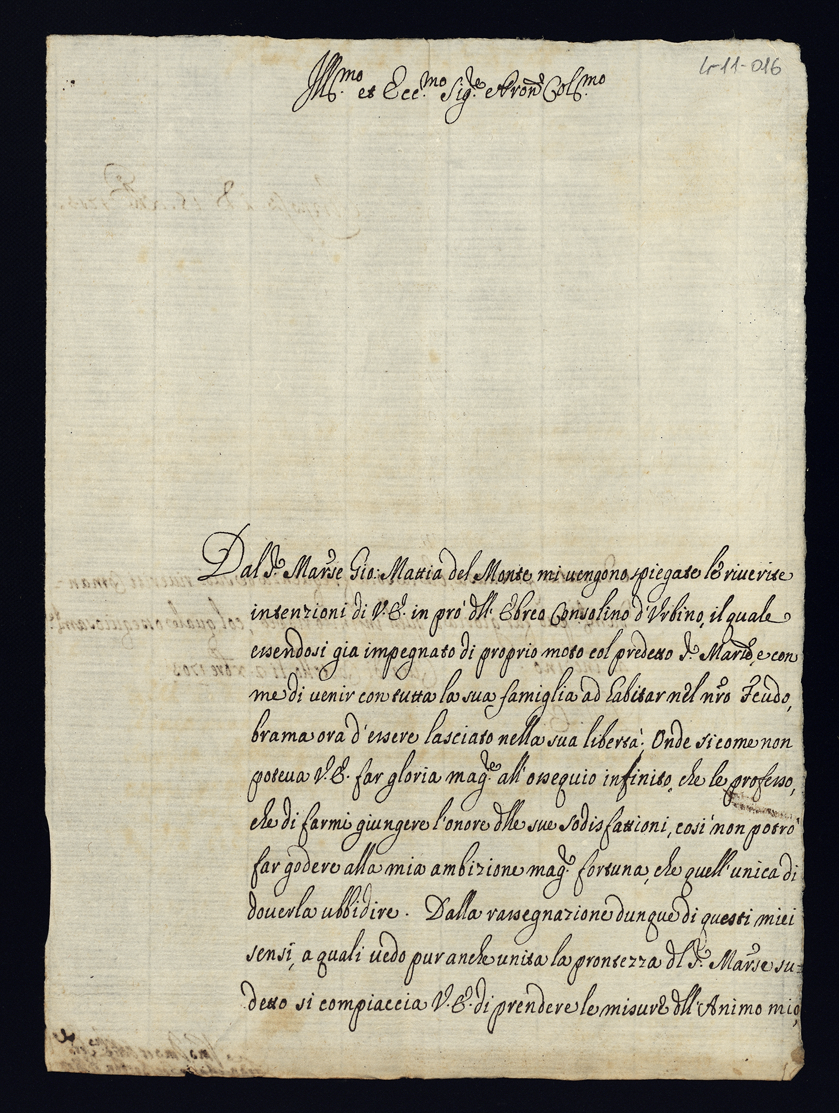 lr-11-016
Ill.mo et Ecc.mo Sig.re Pron Col.mo
Dal S.r Mar.se Gio: Mattia del Monte, mi vengono spiegate le riverite
intenzioni di V.E. in prò dll' Ebreo Consolino d'Urbino, il quale
essendosi gia impegnato di proprio moto col predetto S.r Marse, e con
me di venir con tutta la sua famiglia ad habitar nel nro Feudo,
brama ora d'essere lasciato nella sua libertà; Onde si come non
poteua V.E. far gloria mag.re all' ossequio infinito, che le professo,
che di farmi giungere l'onore dlle sue sodisfattioni, così non potrò
far godere alla mia ambizione mag.r fortuna, che quell'unica di
douerla ubbidire. Dalla rassegnazione dunque di questi miei
sensi, a quali uedo pur anche unita la prontezza dl S.r Mar.se su=
detto si compiaccia V.E. di prendere le misure dll' Animo mio,